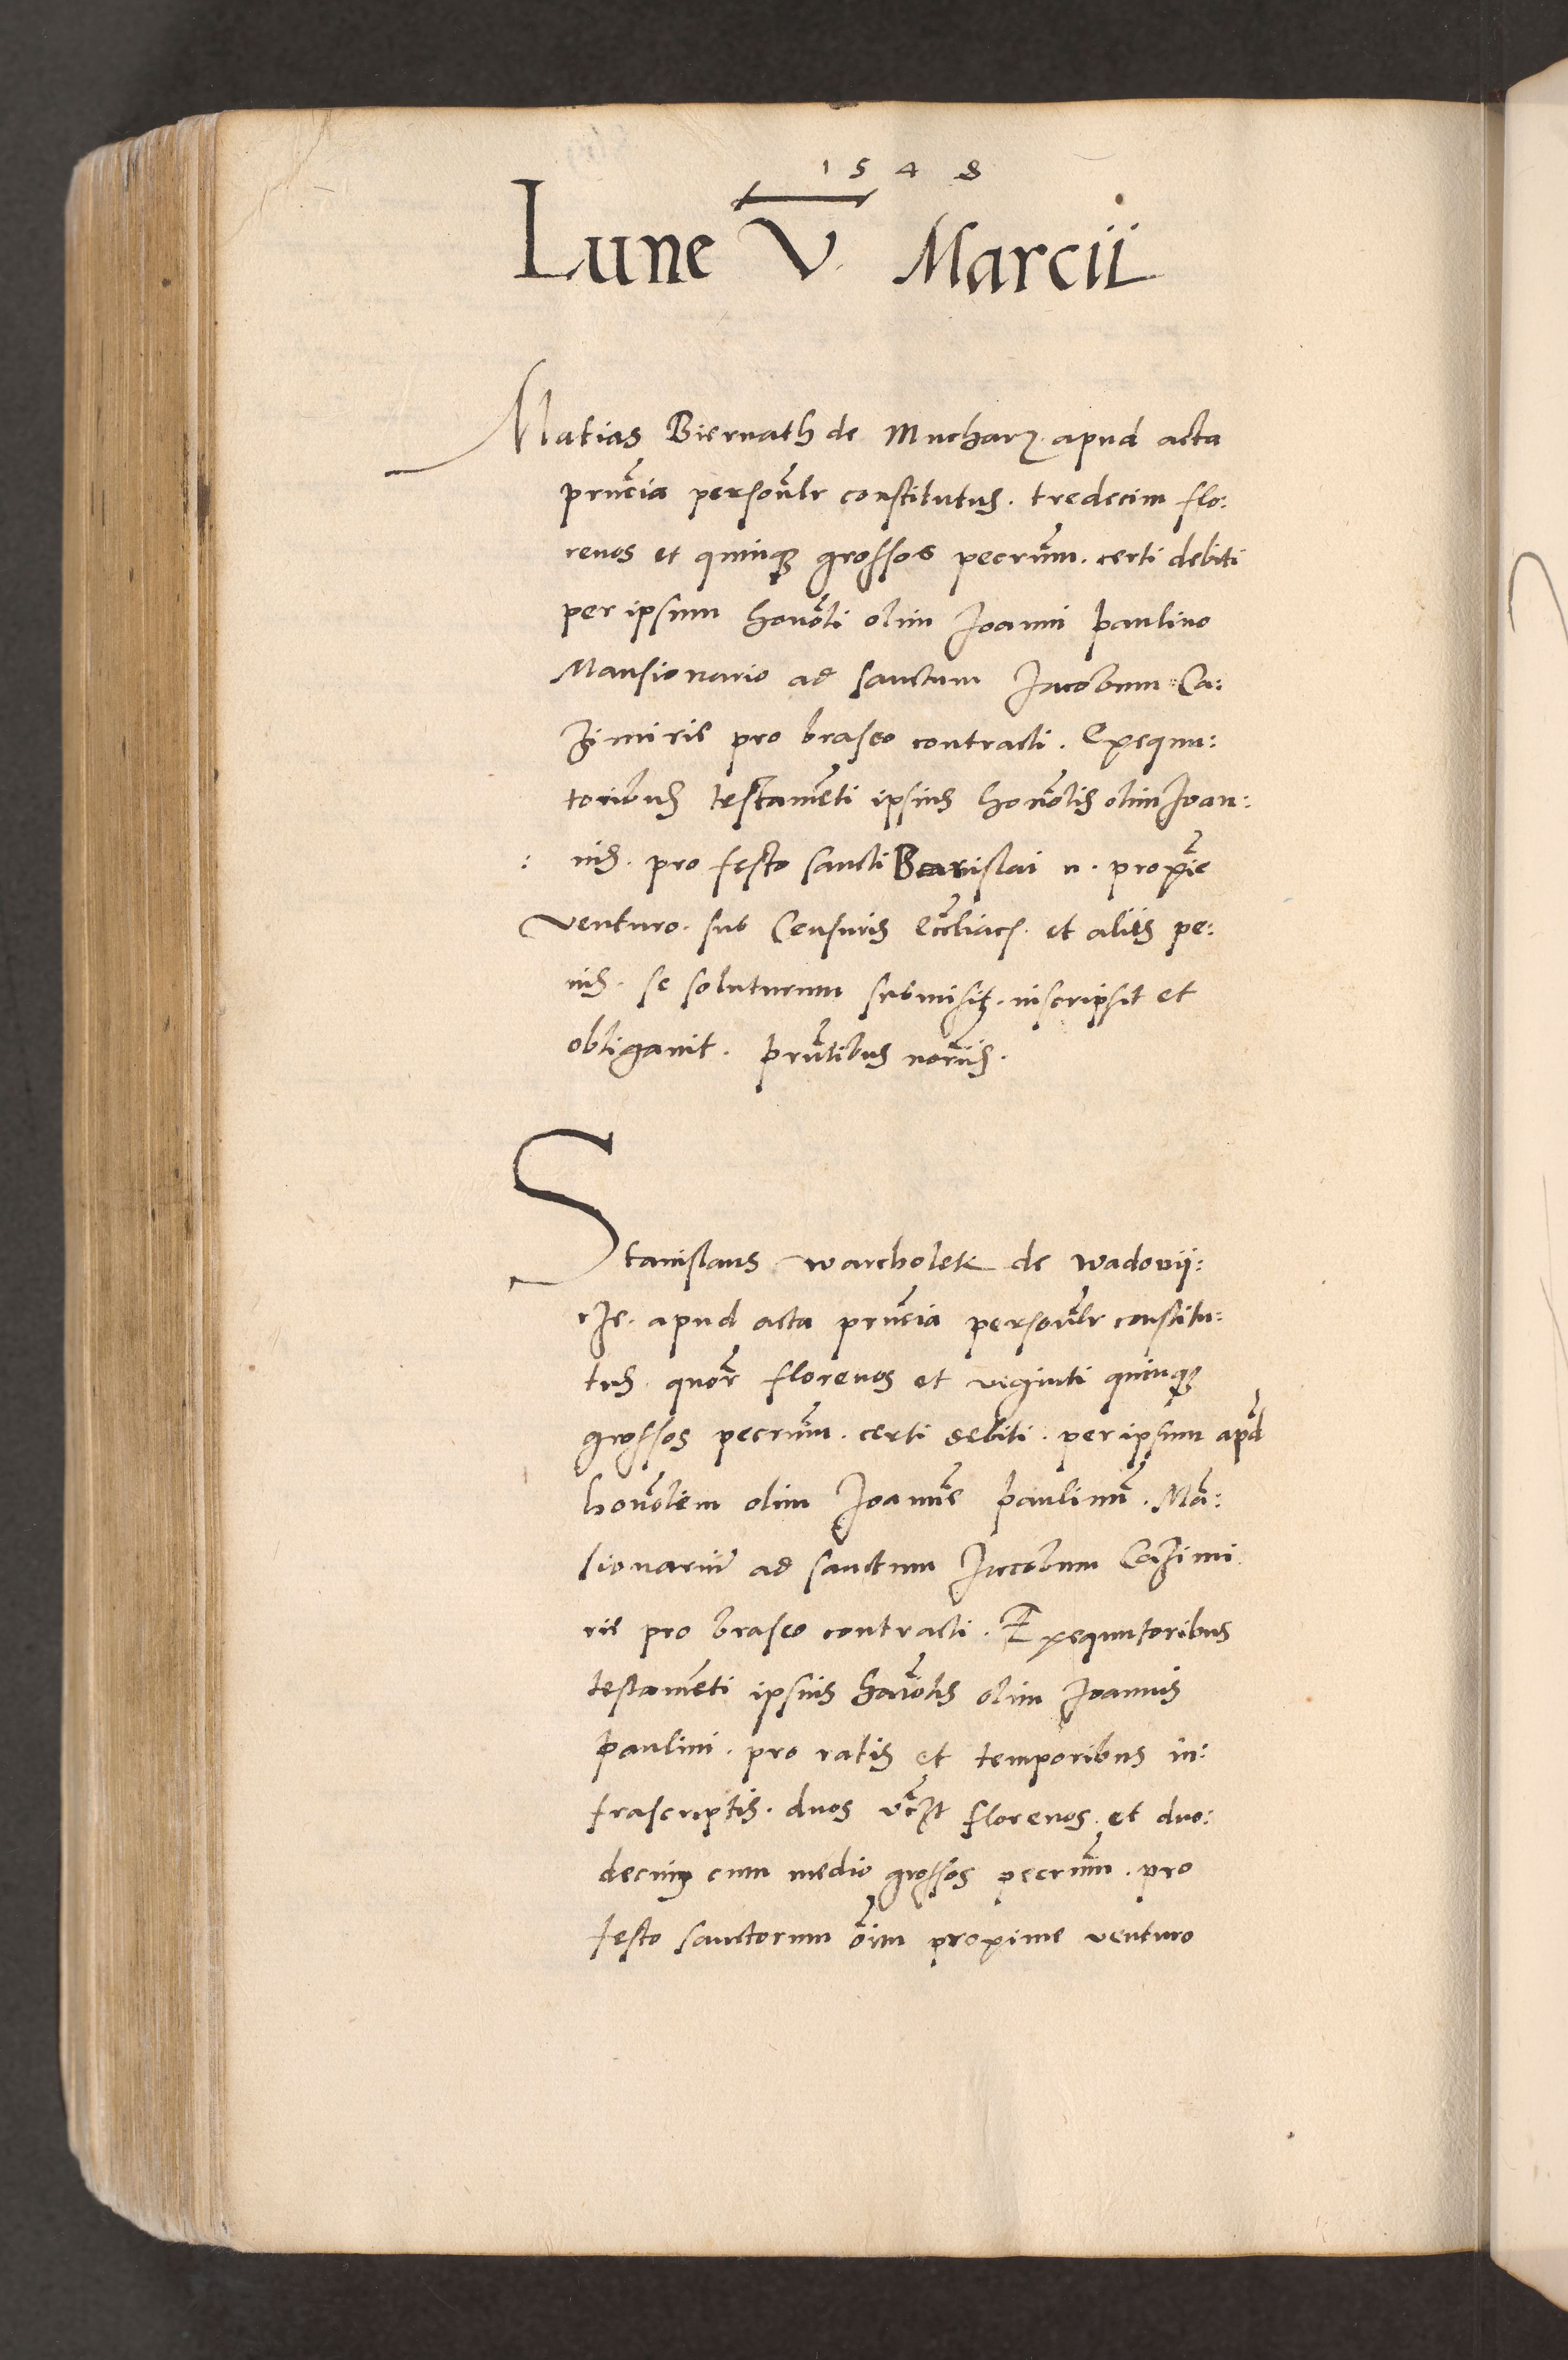 1548
Lune V Marcii
Matias Biernath de Mucharz. apud acta
prn̄cia persoñlr constitutus. tredecim flo:
renos et quinq3 grossos pecrum̄. certi debiti
per ipsum honōli olim Joanni paulino
Mansionario ad sanctum Jacobum Ca:
zimirie pro braseo contracti. Exequu:
toribus testamēti ipsius honōlis olim Joan:
: nis. pro festo sancti Stanislai n. proxīe
venturo. sub Censuris Eccliacs. et aliis pe:
nis. se soluturum submisit. inscripsit et
obligauit. prn̄tibus noriis.
Stanislaus warcholek de wadovij:
cze. apud acta prn̄cia persoñlr constitu:
tus. quor̄ florenos et viginti quinq3
grossos pecrum̄. certi debiti. per ipsum apd
honōlem olim Joannē paulinū. Mā:
sionariū ad sanctum Jacobum Cazimi
rie pro braseo contracti. Exequutoribus
testamēti ipsius honōlis olim Joannis
paulini. pro ratis et temporibus in:
frascriptis. duos vczt florenos. et duo:
decim cum medio grossos pecrum̄. pro
festo sanctorum ōim proxime venturo